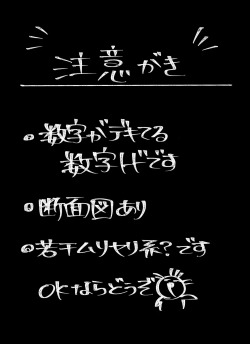 注意がき
・数字がデキてる
数字Hです
・断面図あり
・若干ムリヤリ系?です
OKならどうぞ